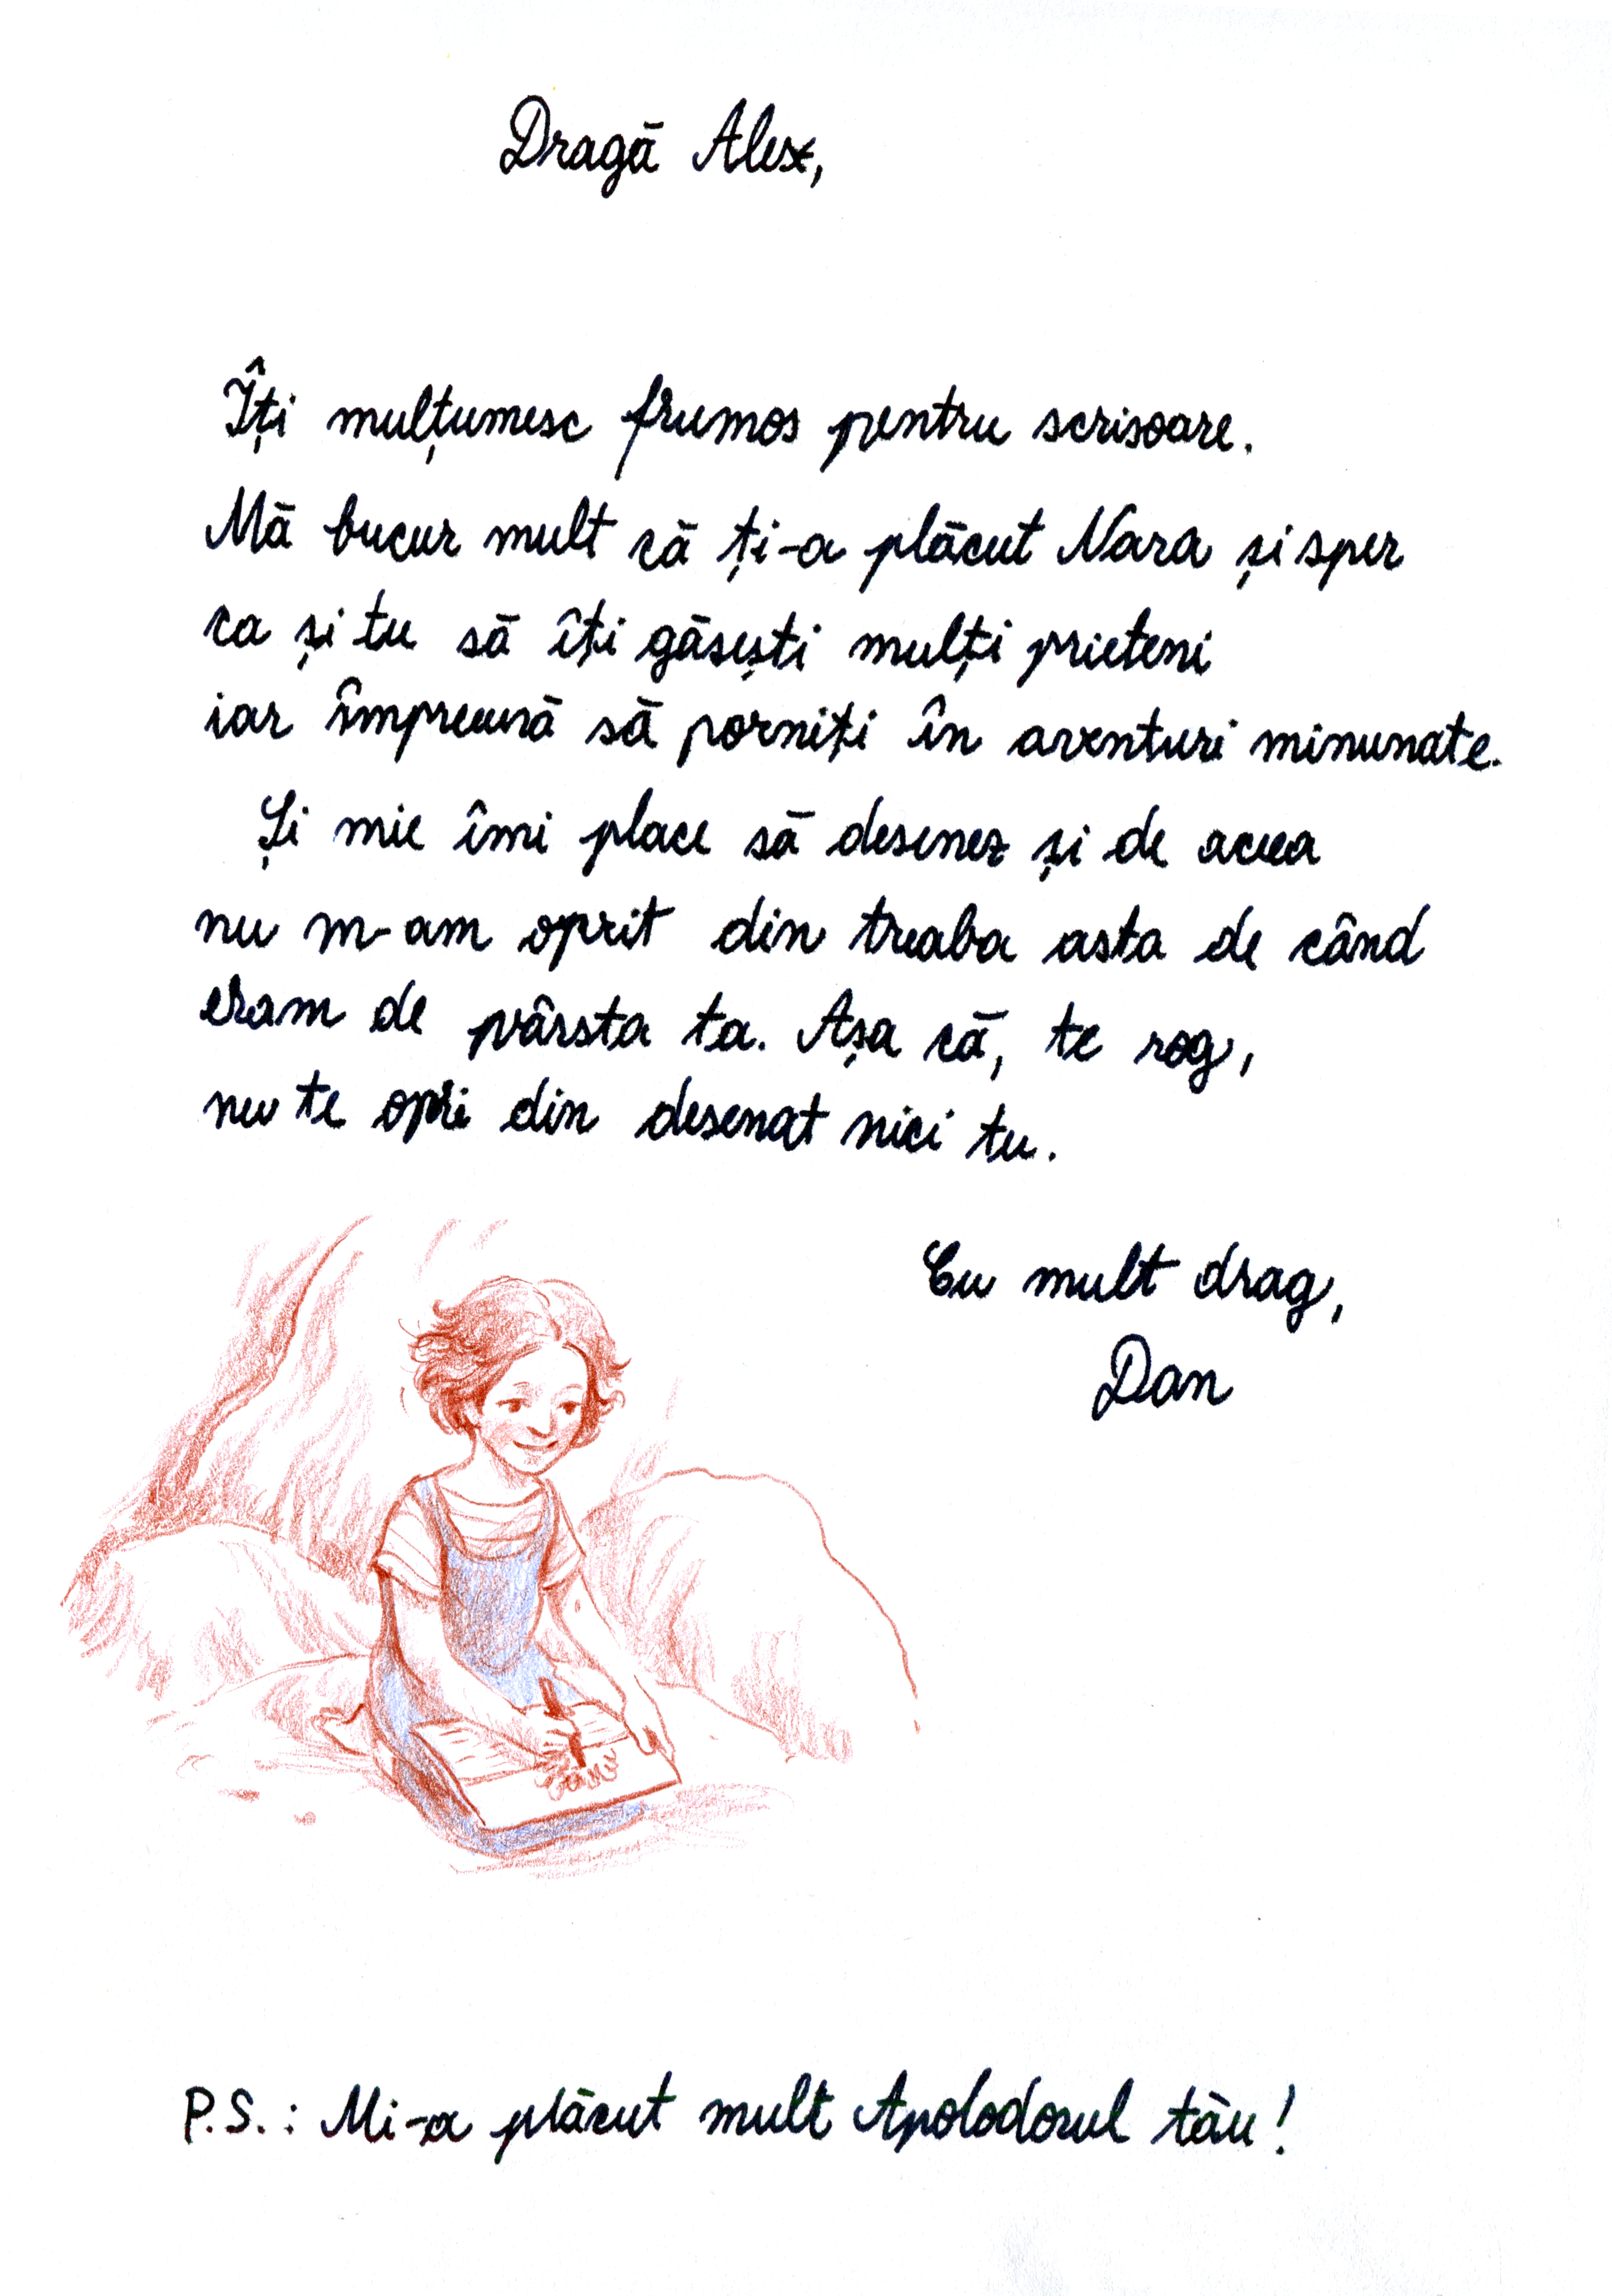 Dragă Alex,
Îți mulțumesc frumos pentru scrisoare.
Mă bucur mult că ți-a plăcut Nara și sper
ca și tu să îți găsești mulți prieteni
iar împreună să porniți în aventuri minunate.
Și mie îmi place să desenez și de aceea
nu m-am oprit din treaba asta de când
eram de vârsta ta. Așa că, te rog,
nu te opri din desenat nici tu.
Cu mult drag,
Dan
P.S.: Mi-a plăcut mult Apolodorul tău!